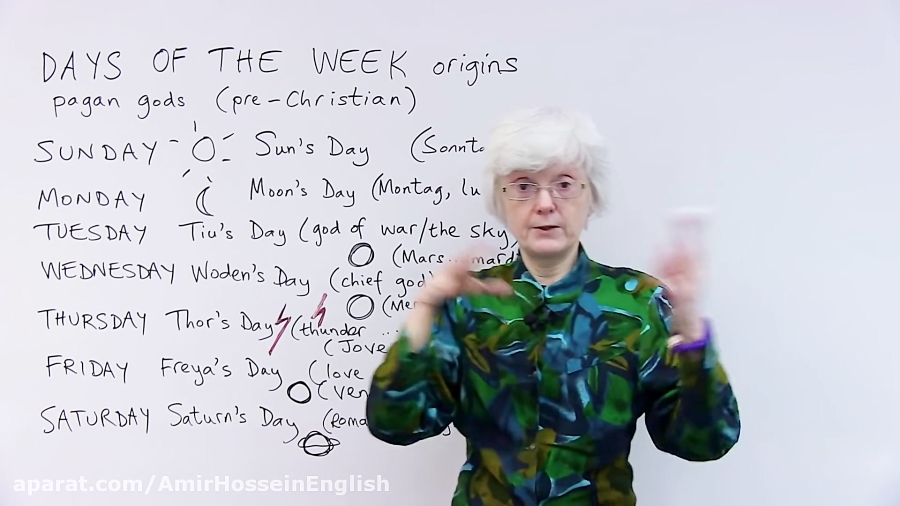 DAYS OF THE WEEK origins
pagan gods (pre-Christian)
SUNDAY Sun's Day
MONDAY Moon's Day (Montag,
TUESDAY Tiu's Day (god of war/the sky
(Mars...
WEDNESDAY Woden's Day (chief god)
THURSDAY Thor's Day (thunder ...
(Jove
FRIDAY Freya's Day (love
SATURDAY Saturn's Day
aparat.com/AmirHosseinEnglish